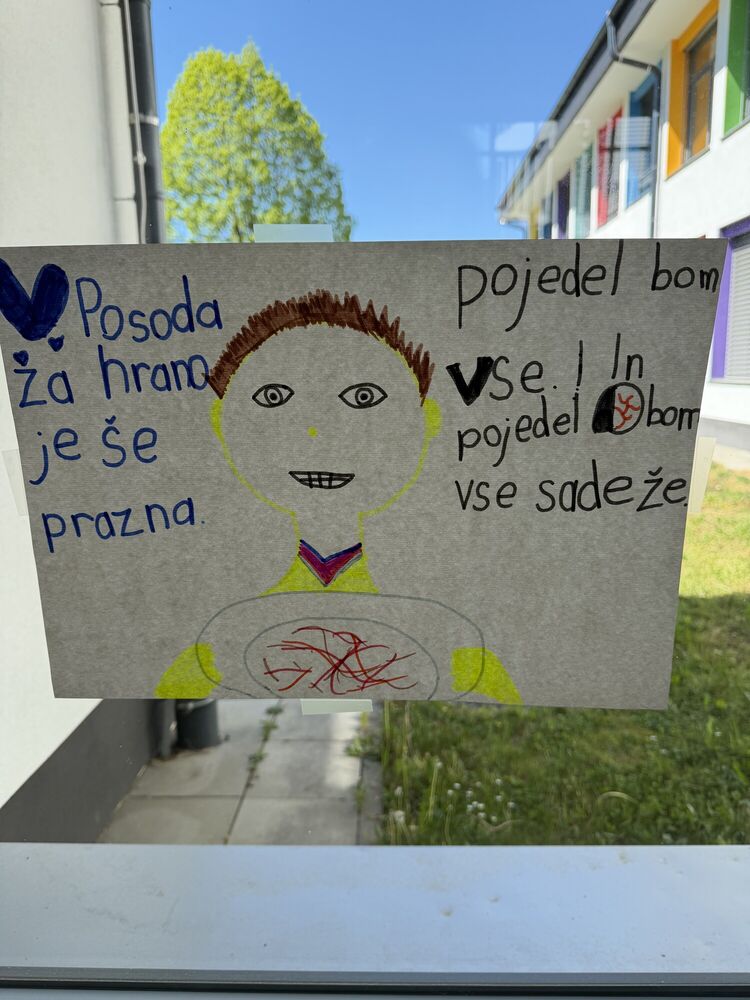 V Posoda
ža hrano
je še
prazna.
pojedel bom
vse. ! In
pojedel bom
vse sadeže.